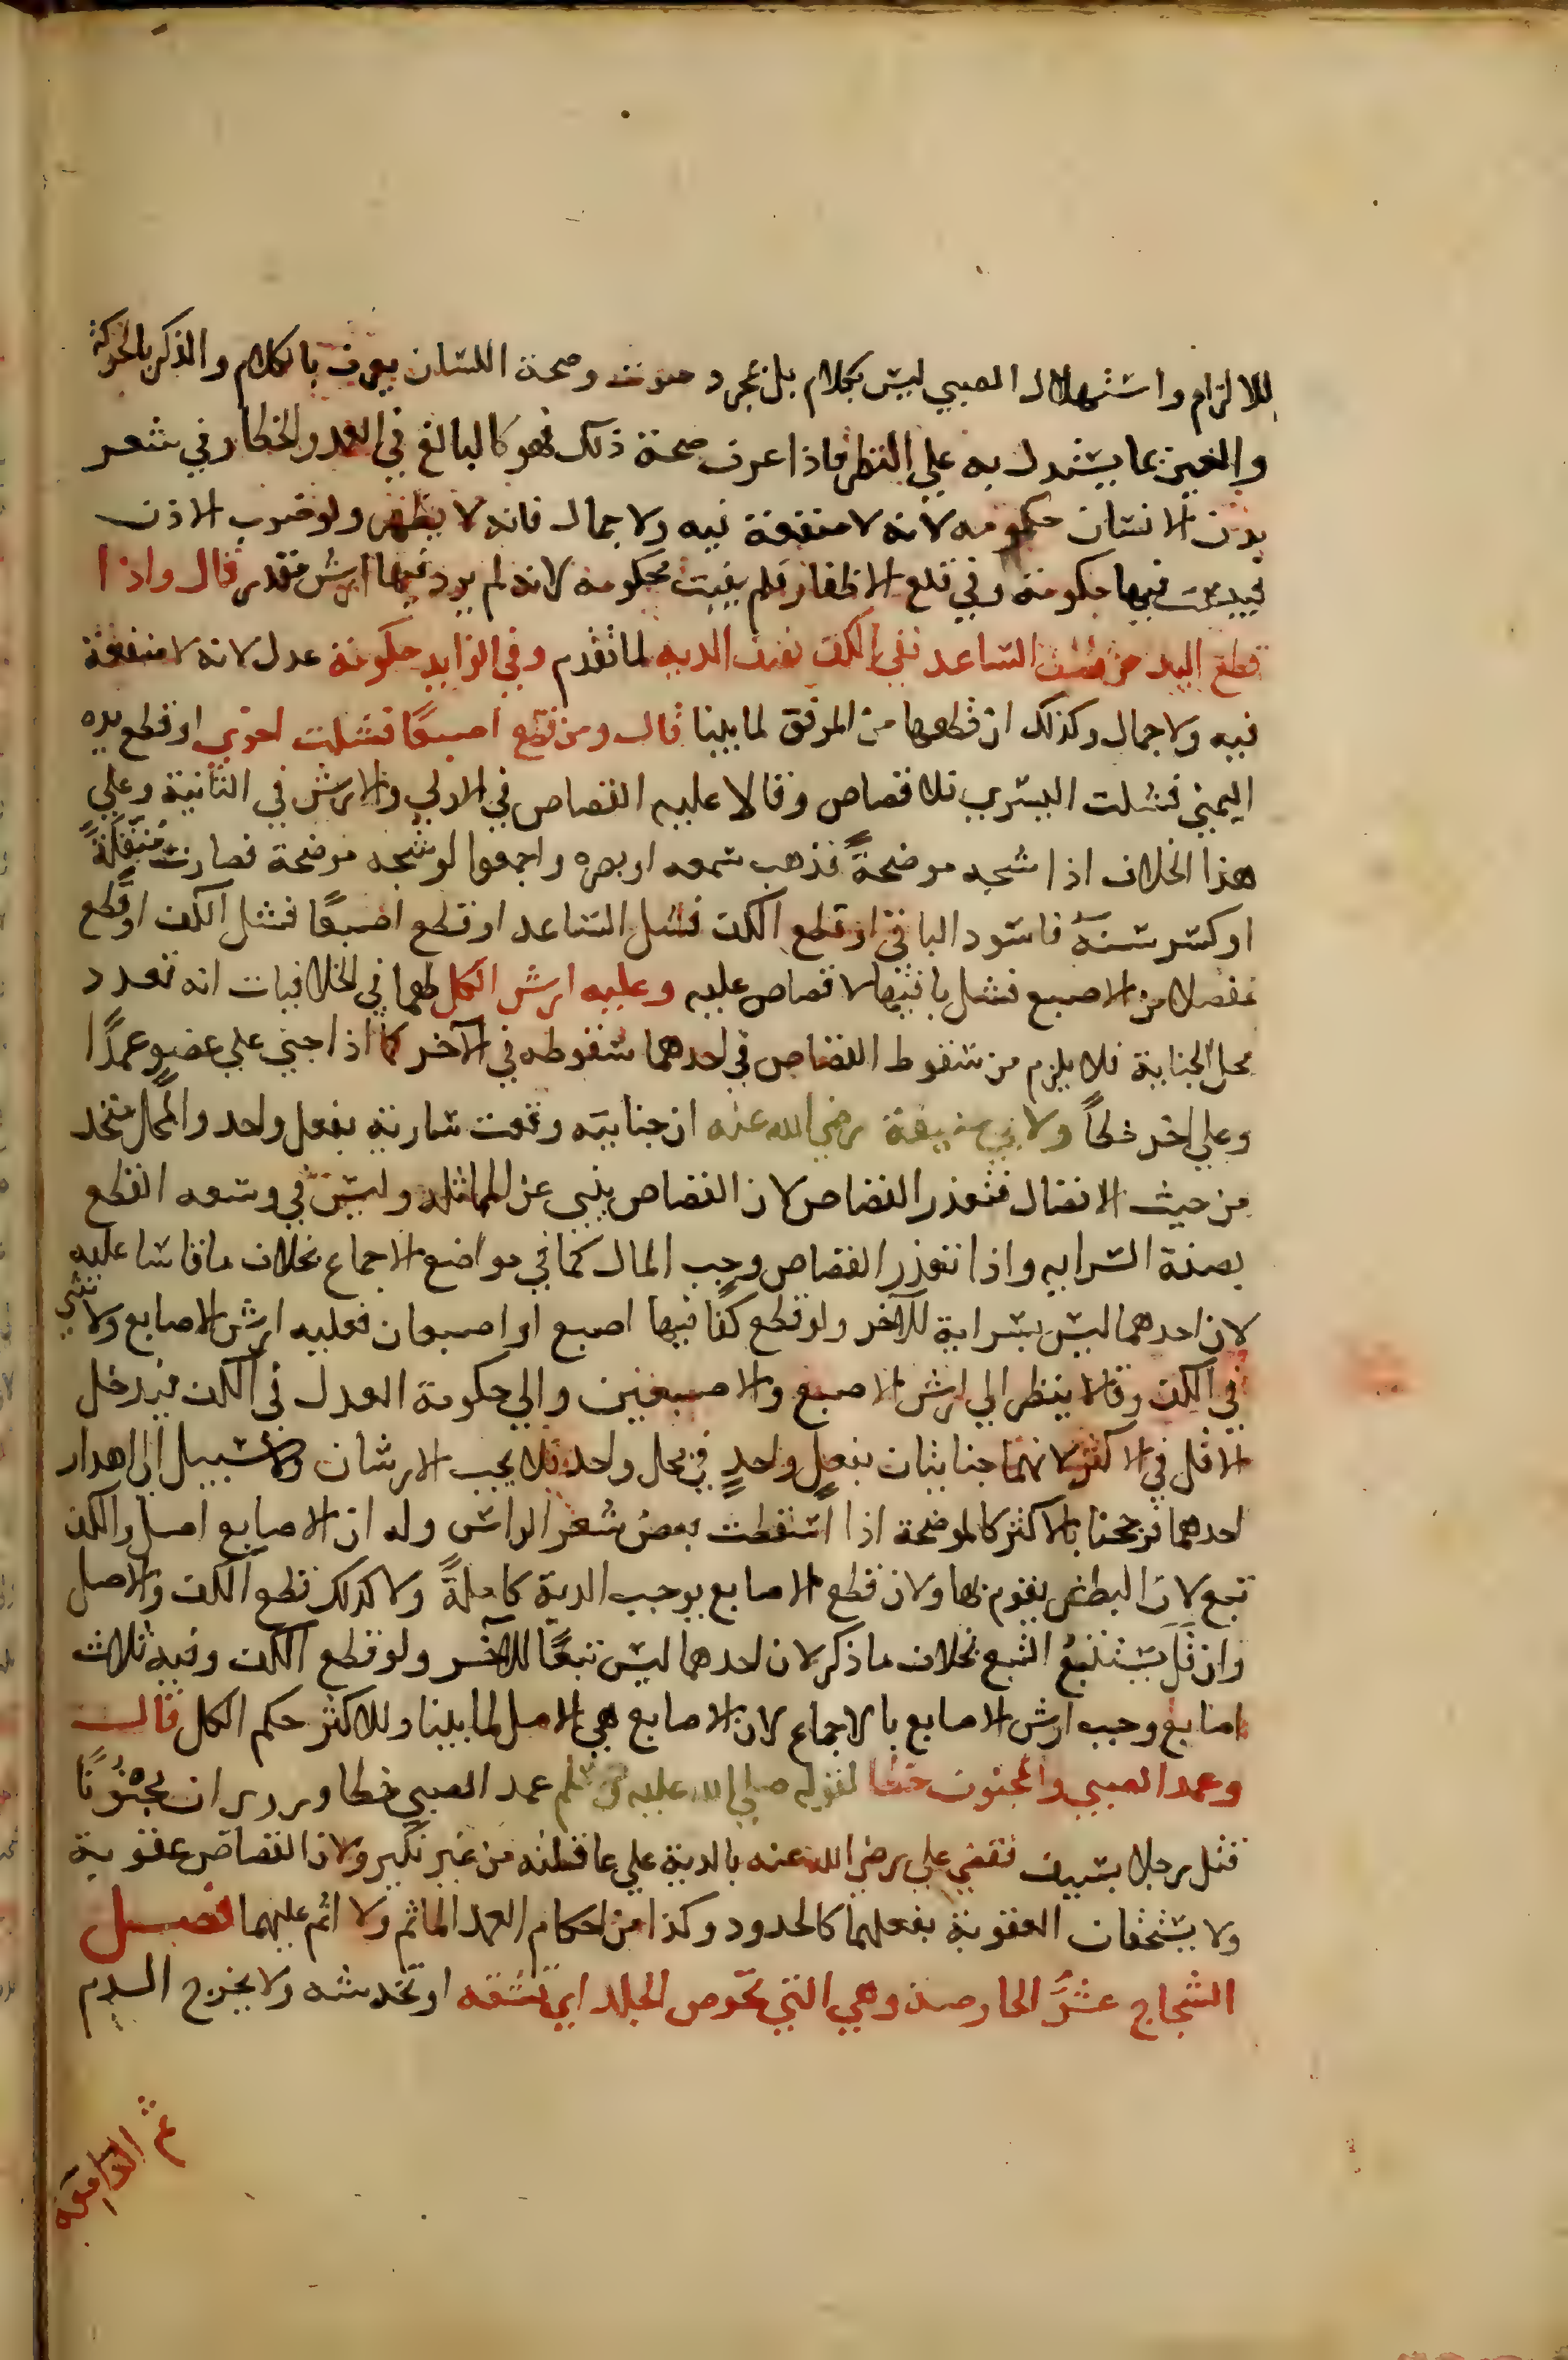 للالزام واستهلال الصبي ليس بكلام بل مجرد صوت وصحة اللسان يعرف بالكلام والذكر بالحركة
والعين بما يستدل به علي النظر فاذا عرف صحة ذلك فهو كالبالغ في العمد والخطا وفي شعر
بدن الانسان حكومه لانه لا منفعة فيه ولا جمال فانه لا يظهر ولو ضرب الاذن
فيبست فيها حكومة وفي قلع الاظفار فلم ينبت حكومة لانه لم يرد فيها ارش مقدر قال واذا
قطع اليد من نصف الساعد ففي الكف نصف الديه لما تقدم وفي الزايد حكومة عدل لانه لا منفعة
فيه ولا جمال وكذلك ان قطعها من المرفق لما بينا قال ومن قطع اصبعًا فشلت اخري او قطع يده
اليمني فشلت اليسري فلا قصاص وقالا عليه القصاص في الاولي والارش في الثانية وعلي
هذا الخلاف اذا شجه موضحةً فذهب سمعه او بصره واجمعوا لو شجه موضحة فصارت منقلةً
او كسر سنه فاسود الباقي او قطع الكف فشل الساعد او قطع اصبعًا فشل الكف او قطع
مفصلا من الاصبع فشل باقيها لا قصاص عليه وعليه ارش الكل لهما في الخلافيات انه تعدد
محل الجناية فلا يلزم من سقوط القصاص في احدهما سقوطه في الآخر كما اذا جني علي عضو عمدًا
وعلي اخر خطأً ولابي حنيفة رضي الله عنه ان جنايته وقعت سارية بفعل واحد والمحل متحد
من حيث الاتصال فتعذر القصاص لان القصاص ينبي عن المماثله وليس في وسعه القطع
بصفة السرايه واذا تعذر القصاص وجب المال كما في مواضع الاجماع بخلاف ما قاسا عليه
لان احدهما ليس بسراية للآخر ولو قطع كفا فيها اصبع او اصبعان فعليه ارش الاصابع ولا شي
في الكف وقالا ينظر الي ارش الاصبع والاصبعين والي حكومة العدل في الكف فيدخل
الاقل في الاكثر لانهما جنايتان بفعلٍ واحدٍ في محل واحد فلا يجب الارشان ولا سبيل الي اهدار
احدهما فرجحنا بالاكثر كالموضحة اذا اسقطت بعض شعر الراس وله ان الاصابع اصل والكف
تبع لان البطش يقوم بها ولان قطع الاصابع يوجب الدية كاملةً ولا كذلك قطع الكف والاصل
وان قل يستتبع التبع بخلاف ما ذكر لان احدهما ليس تبعًا للآخر ولو قطع الكف وفيه ثلاث
اصابع وجب ارش الاصابع بالاجماع لان الاصابع هي الاصل لما بينا وللاكثر حكم الكل قال
وعمد الصبي والمجنون خطا لقوله صلي الله عليه وسلم عمد الصبي خطا وروي ان مجنونًا
قتل رجلا بسيف فقضي علي رضي الله عنه بالدية علي عاقلته من غير نكير ولان القصاص عقوبة
ولا يستحقان العقوبة بفعلهما كالحدود وكذا من احكام العمد الماثم ولا اثم عليهما فصل
الشجاج عشرٌ الحارصة وهي التي تحرص الجلد اي تشقه او تخدشه ولا يخرج الدم
ثم الدامعة